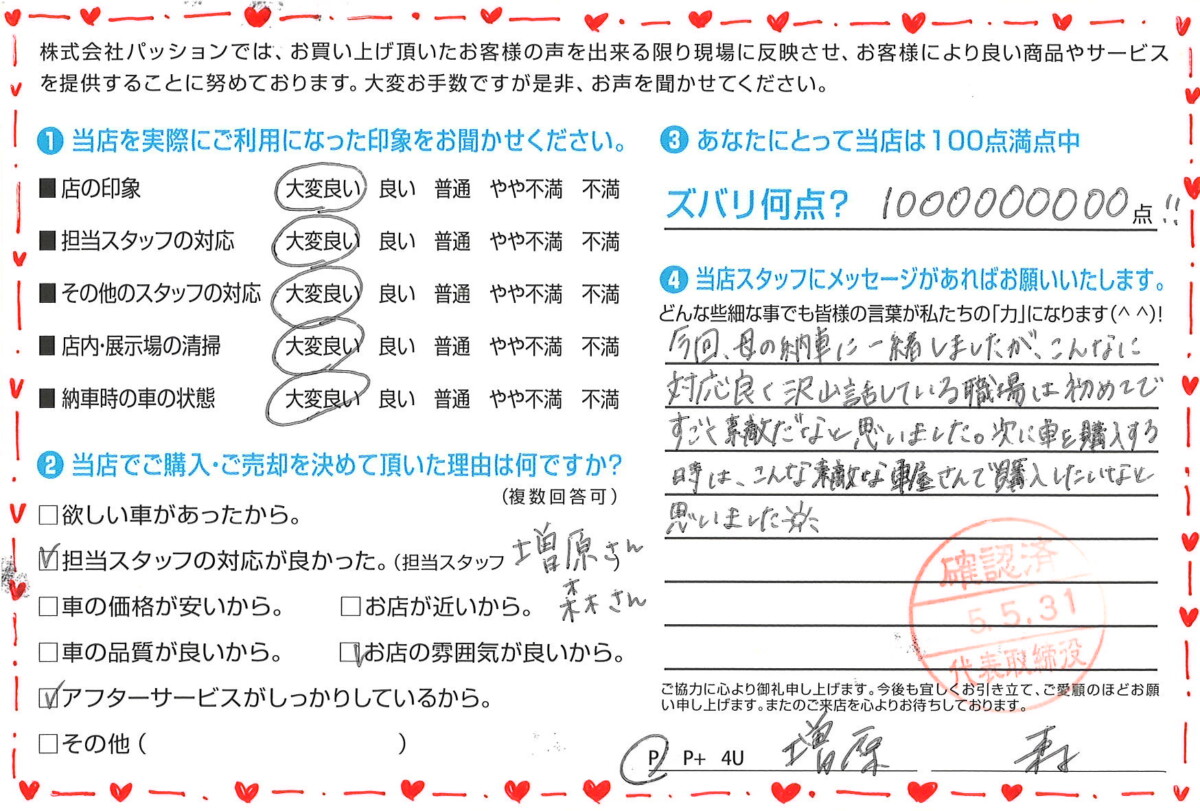 株式会社パッションでは、お買い上げ頂いたお客様の声を出来る限り現場に反映させ、お客様により良い商品やサービス
を提供することに努めております。大変お手数ですが是非、お声を聞かせてください。
1 当店を実際にご利用になった印象をお聞かせください。
■店の印象 大変良い 良い 普通 やや不満 不満
■担当スタッフの対応 大変良い 良い 普通 やや不満 不満
■その他のスタッフの対応 大変良い 良い 普通 やや不満 不満
■店内・展示場の清掃 大変良い 良い 普通 やや不満 不満
■納車時の車の状態 大変良い 良い 普通 やや不満 不満
2 当店でご購入・ご売却を決めて頂いた理由は何ですか?
(複数回答可)
□欲しい車があったから。
☑担当スタッフの対応が良かった。(担当スタッフ 増原さん)
森さん
□車の価格が安いから。 □お店が近いから。
□車の品質が良いから。 ☑お店の雰囲気が良いから。
☑アフターサービスがしっかりしているから。
□その他( )
3 あなたにとって当店は100点満点中
ズバリ何点? 1000000000点!!
4 当店スタッフにメッセージがあればお願いいたします。
どんな些細な事でも皆様の言葉が私たちの「力」になります(^ ^)!
今回、母の納車に一緒しましたが、こんなに
対応良く沢山話している職場は初めてで
すごく素敵だなと思いました。次に車を購入する
時は、こんな素敵な車屋さんで購入したいなと
思いました
確認済
5.5.31
代表取締役
ご協力に心より御礼申し上げます。今後も宜しくお引き立て、ご愛顧のほどお願
い申し上げます。またのご来店を心よりお待ちしております。
P P+ 4U 増原 森